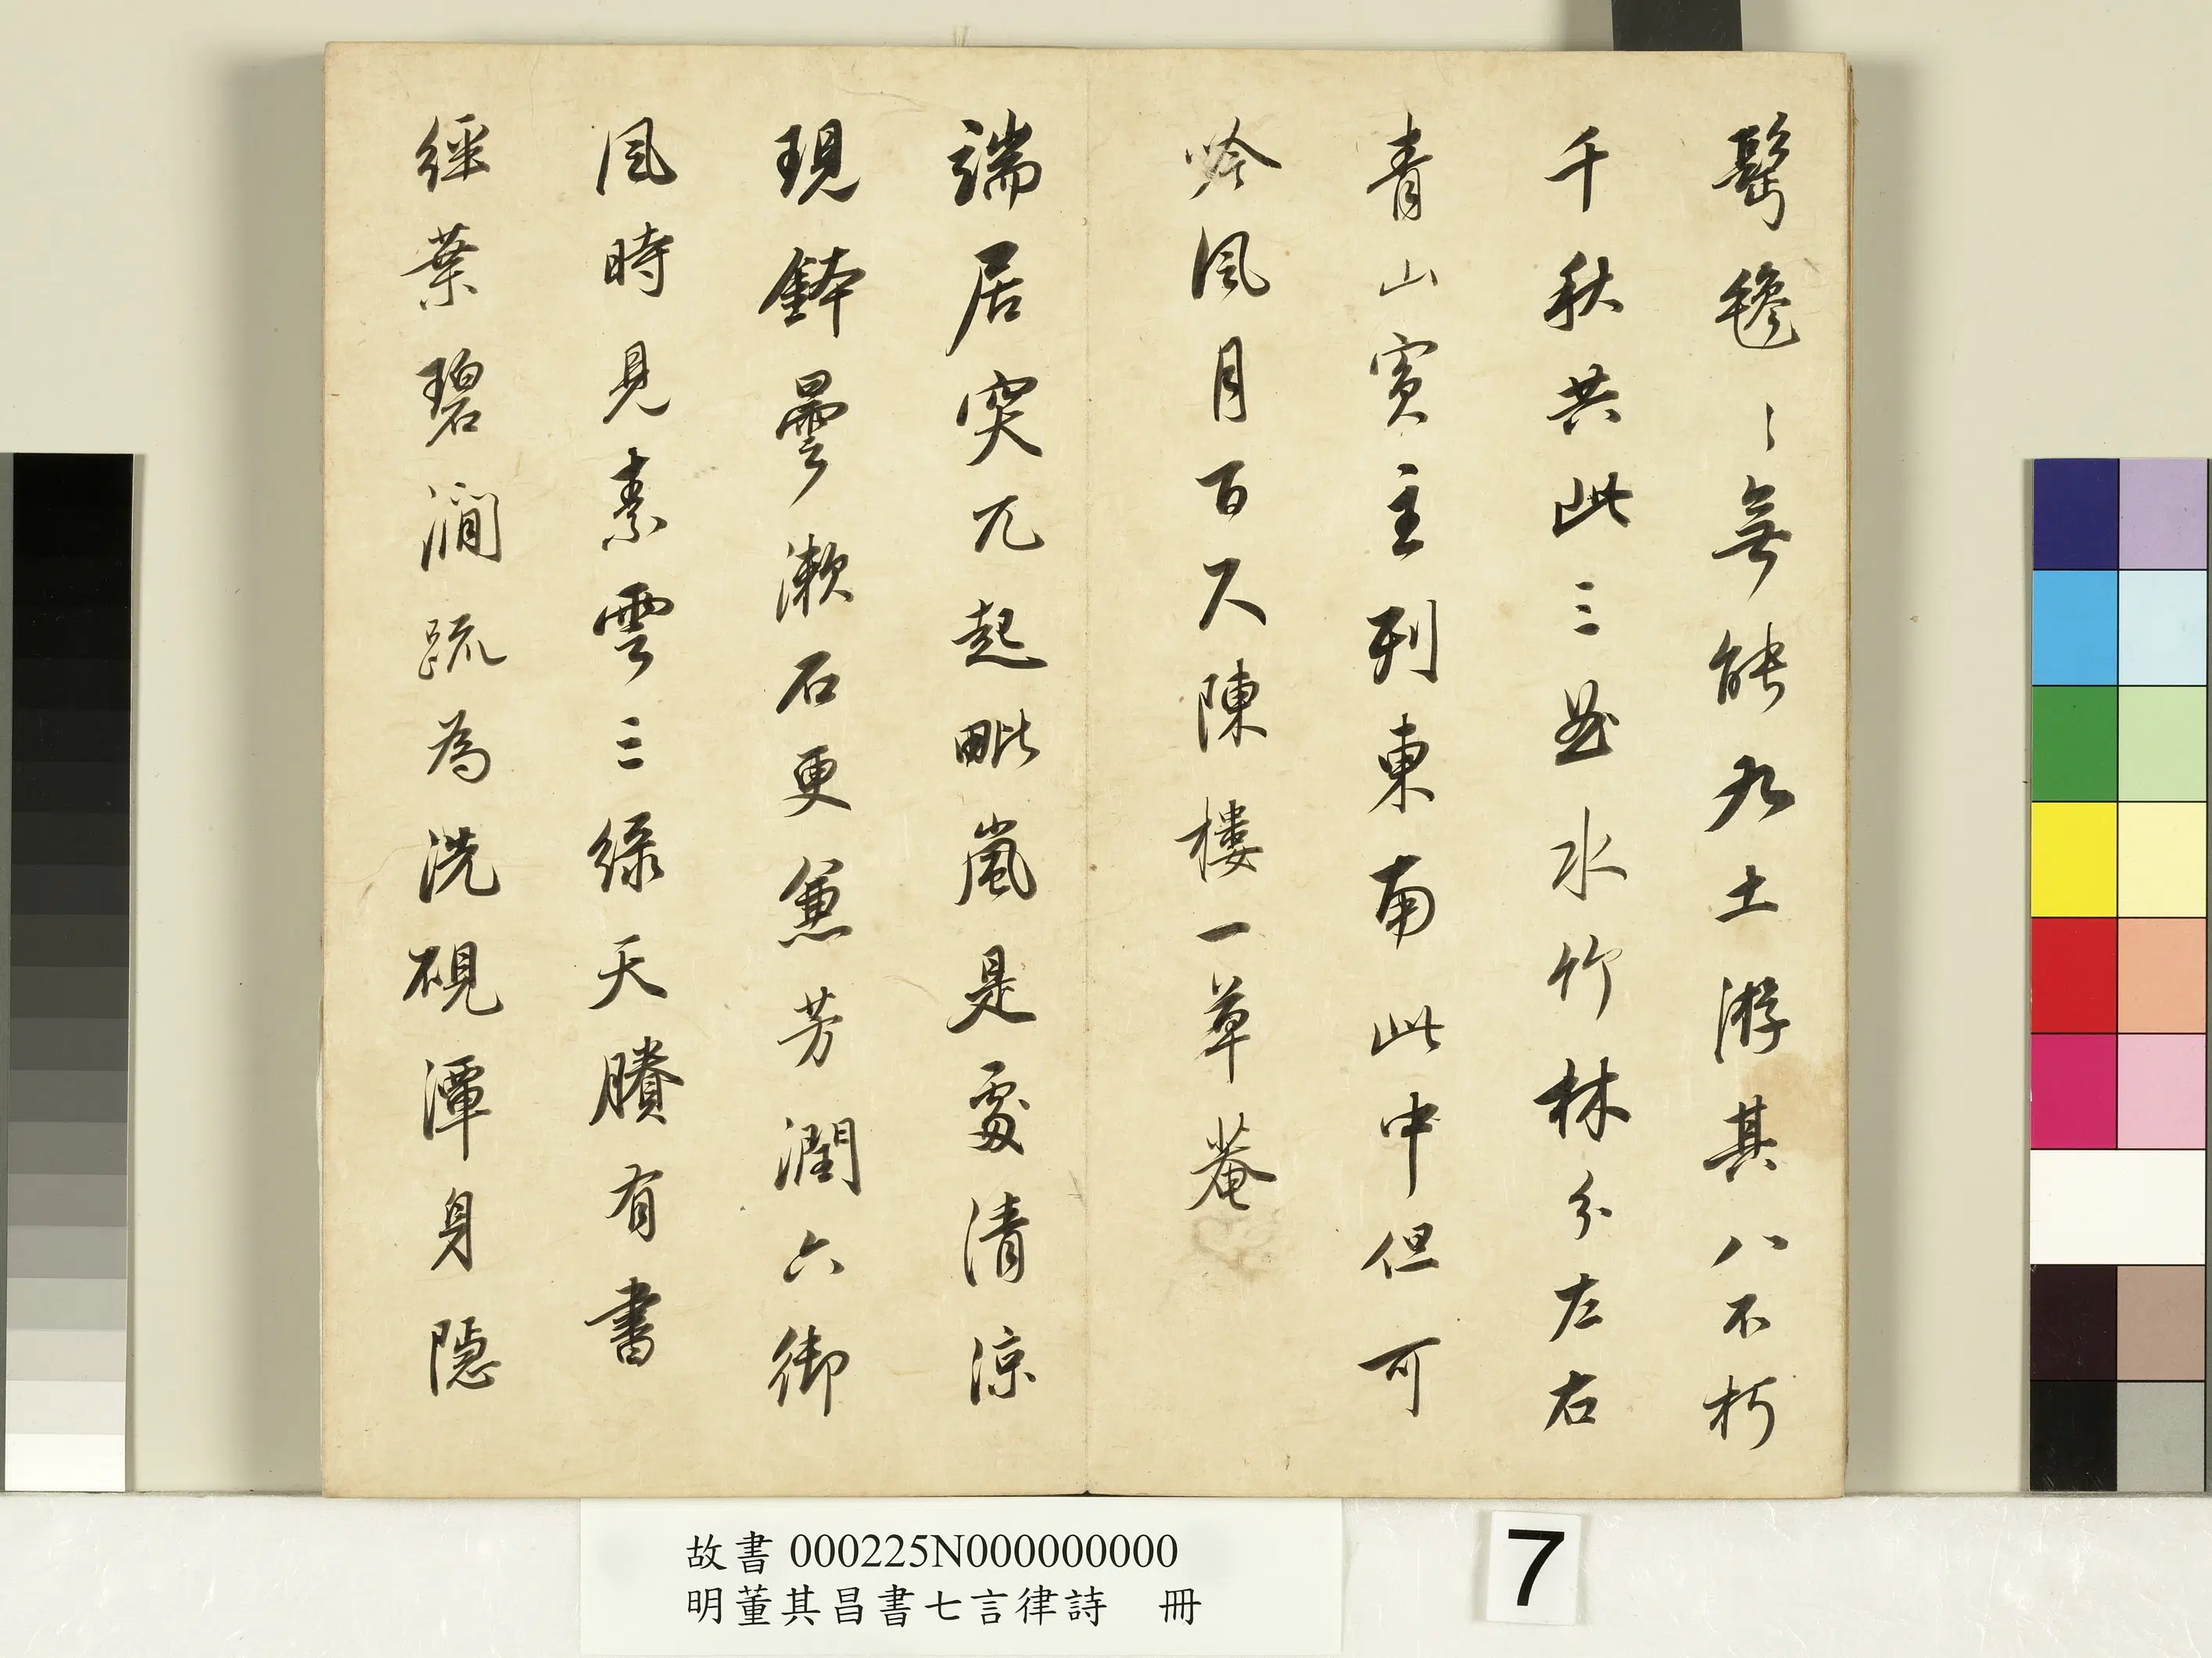 鬢毿〻無能九土游其八不朽
千秋共此三並水竹林分左右
青山賓主列東南此中但可
吟風月百尺陳樓一草菴
端居突兀起毗嵐是處清涼
現鉢曇漱石更兼芳潤六御
風時見素雲三綠天賸有書
經葉碧澗疏為洗硯潭身隱
故書 000225N000000000
明董其昌書七言律詩　冊
7